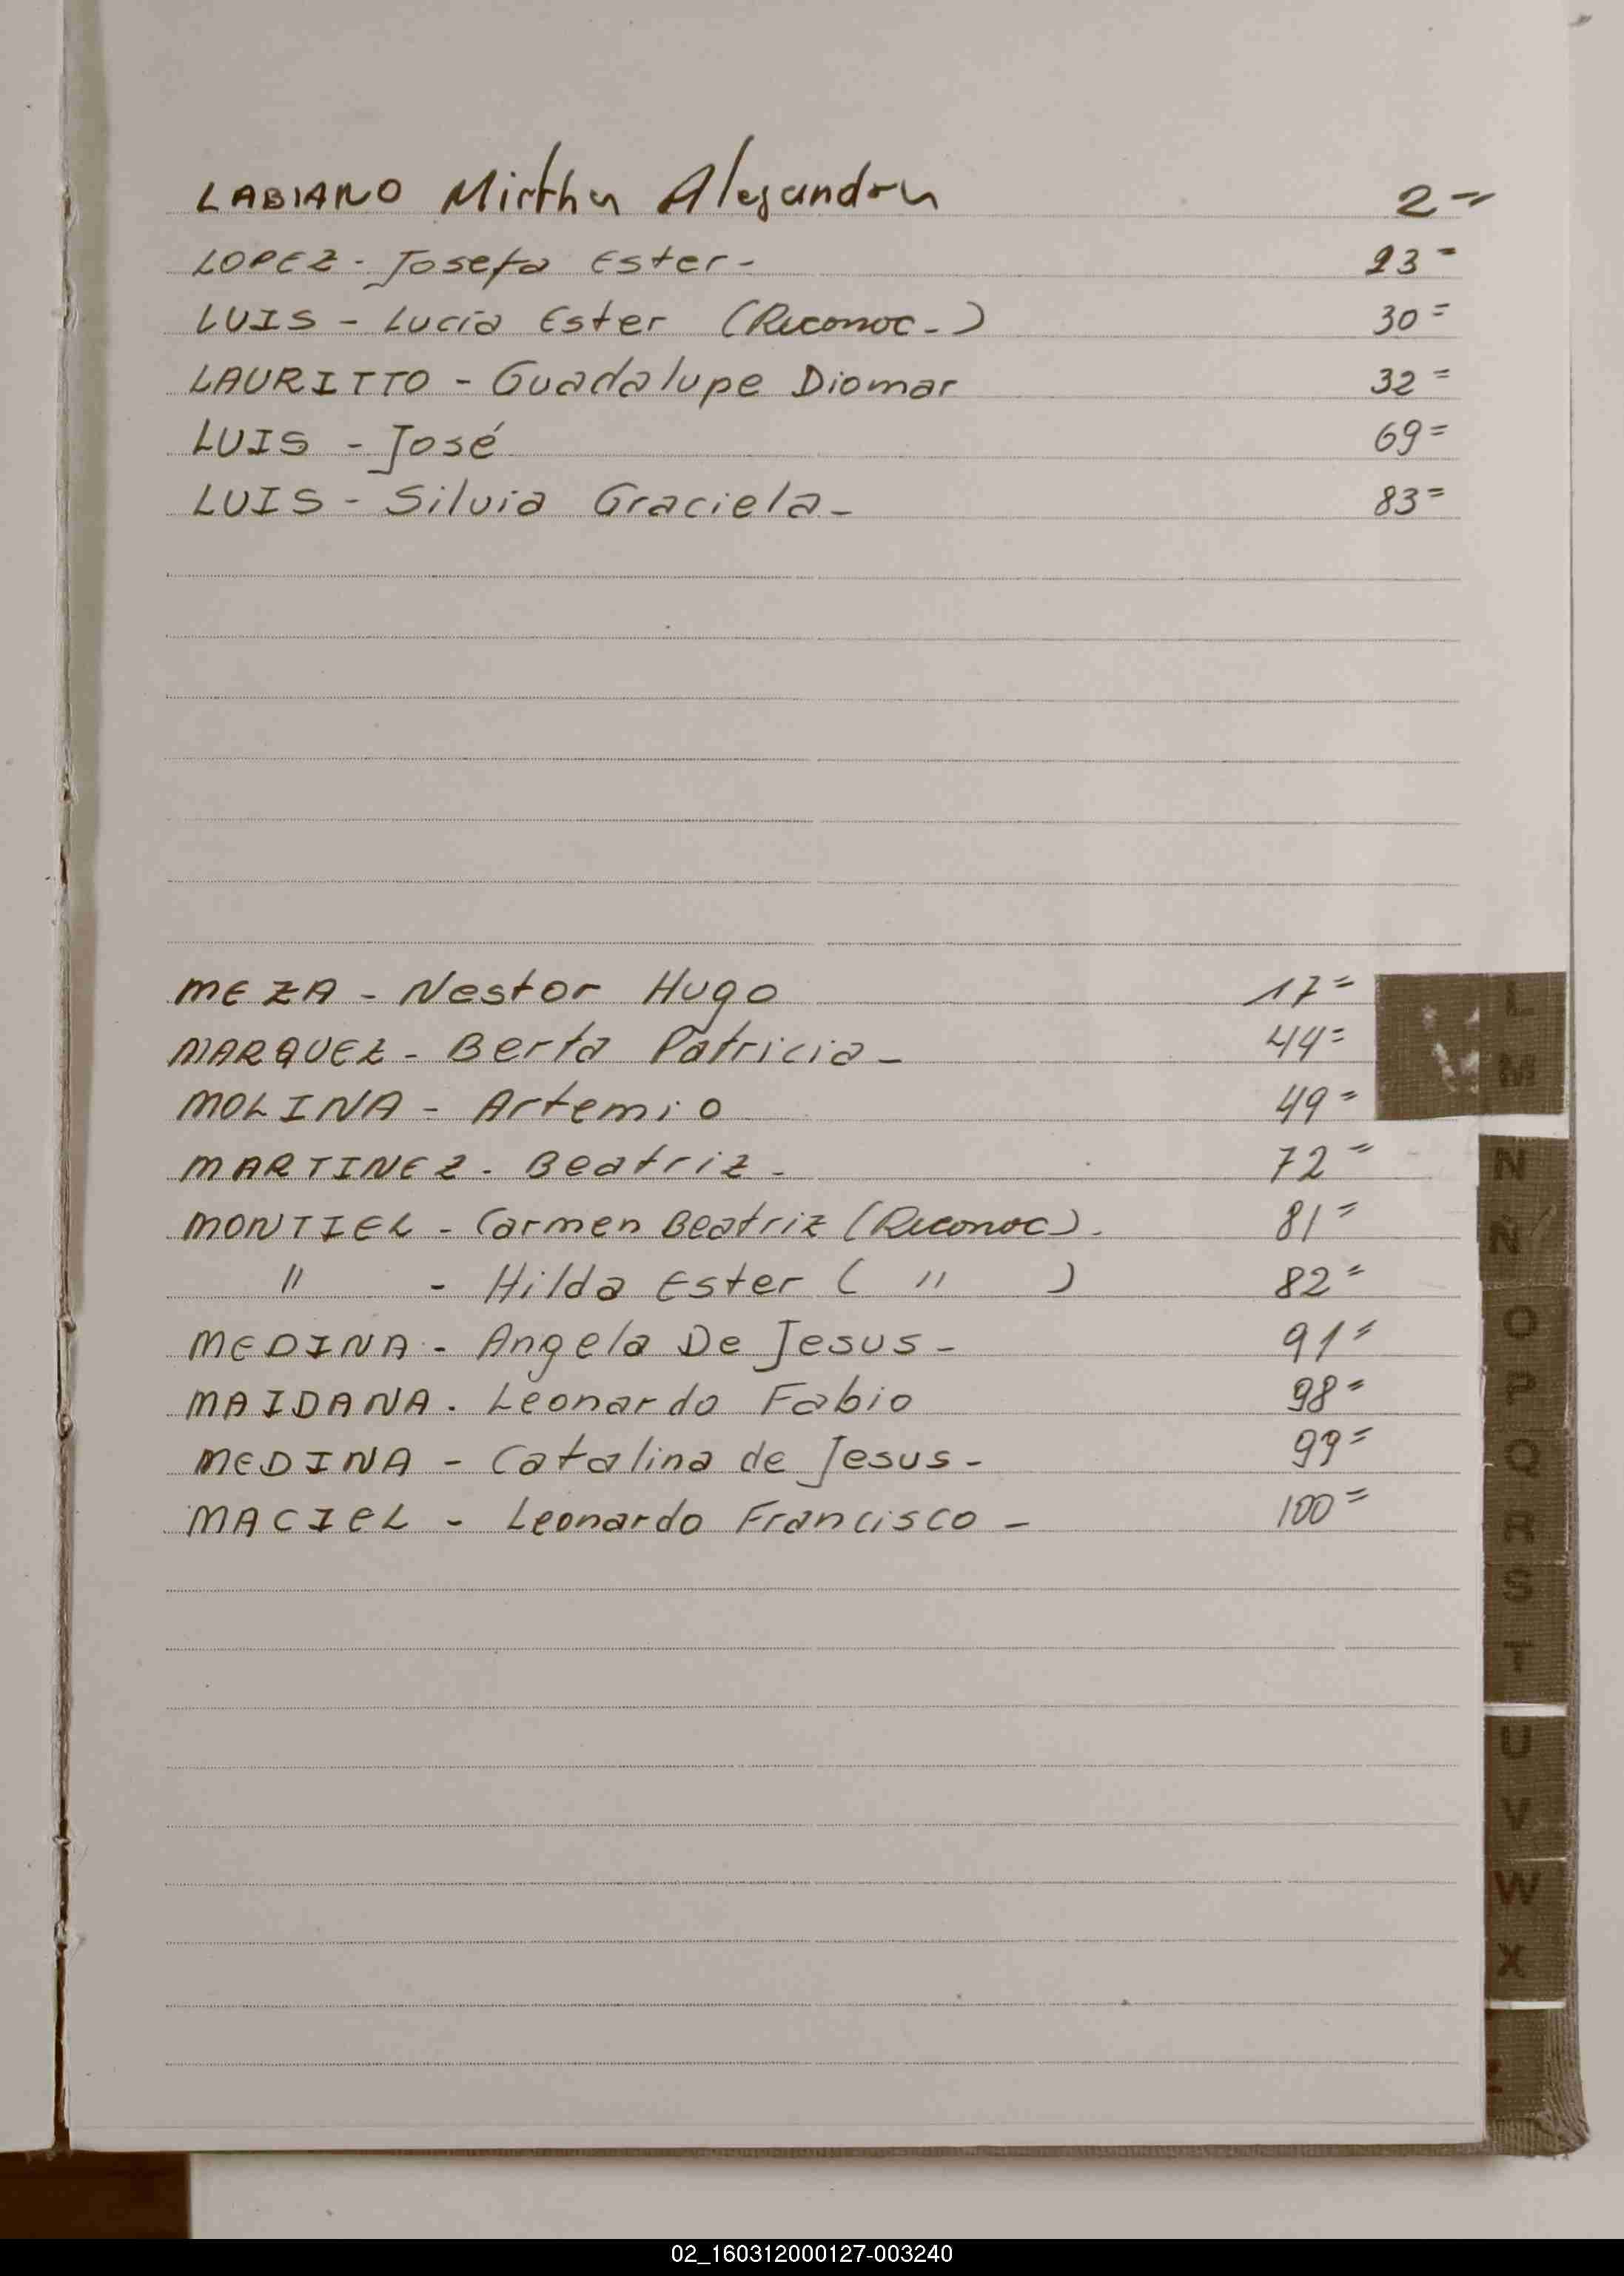 LABIANO Mirtha Alejandra 2=
LOPEZ - Josefa Ester - 23=
LUIS - Lucía Ester (Reconoc-) 30=
LAURITTO - Guadalupe Diomar 32=
LUIS - José 69=
LUIS - Silvia Graciela - 83=
MEZA - Nestor Hugo 17=
MARQUEZ - Berta Patricia - 44=
MOLINA - Artemio 49=
MARTINEZ - Beatriz - 72=
MONTIEL - Carmen Beatriz (Reconoc). 81=
" - Hilda Ester ( " ) 82=
MEDINA - Angela De Jesus - 91=
MAIDANA. Leonardo Fabio 98=
MEDINA - Catalina de Jesus - 99=
MACIEL - Leonardo Francisco - 100=
L
M
N
Ñ
O
P
Q
R
S
T
U
V
W
X
02_160312000127-003240